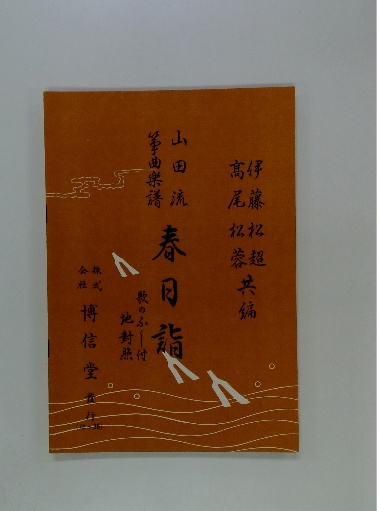 伊藤松超
髙尾松蓉
共編
山田流
箏曲楽譜
春日詣
歌のふし付
地對照
株式
会社
博信堂
發行